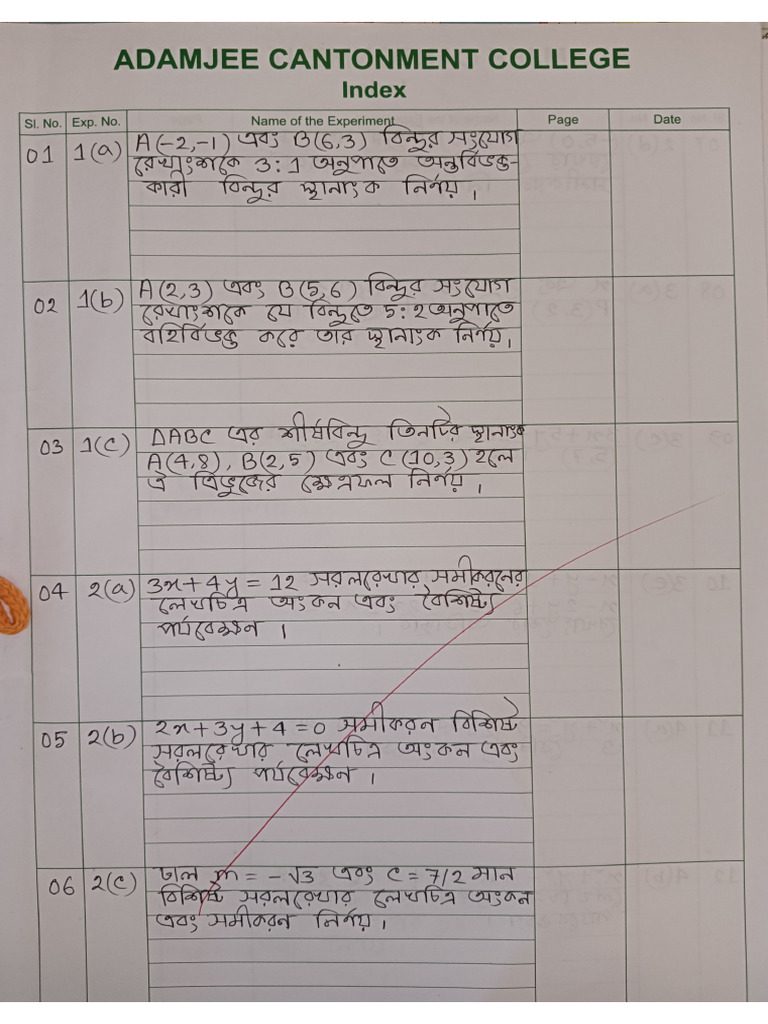 ADAMJEE CANTONMENT COLLEGE
Index
Sl. No. Exp. No. Name of the Experiment Page Date
01 1(a) A(-2,-1) এবং B(6,3) বিন্দুর সংযোগ
রেখাংশকে 3:1 অনুপাতে অন্তর্বিভক্ত-
কারী বিন্দুর স্থানাংক নির্ণয়।
02 1(b) A(2,3) এবং B(5,6) বিন্দুর সংযোগ
রেখাংশকে যে বিন্দুতে 5:2 অনুপাতে
বহির্বিভক্ত করে তার স্থানাংক নির্ণয়।
03 1(c) ΔABC এর শীর্ষবিন্দু তিনটির স্থানাংক
A(4,8), B(2,5) এবং C(10,3) হলে
ঐ ত্রিভুজের ক্ষেত্রফল নির্ণয়।
04 2(a) 3x+4y = 12 সরলরেখার সমীকরনের
লেখচিত্র অংকন এবং বৈশিষ্ট্য
পর্যবেক্ষন।
05 2(b) 2x+3y+4=0 সমীকরন বিশিষ্ট
সরলরেখার লেখচিত্র অংকন এবং
বৈশিষ্ট্য পর্যবেক্ষন।
06 2(c) ঢাল m = -√3 এবং c = 7/2 মান
বিশিষ্ট সরলরেখার লেখচিত্র অংকন
এবং সমীকরন নির্ণয়।